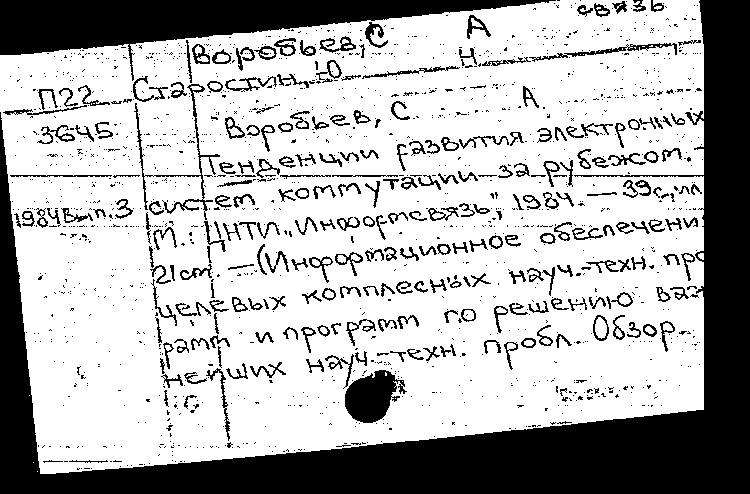 связь
Воробьев, С А
Старостин, Ю Н
П22
3645
Воробьев, С А
Тенденции развития электронных
систем коммутации за рубежом. -
1984 Вып. 3
М.: ЦНТИ „Информсвязь", 1984. — 39 с., ил
21 cm. — (Информационное обеспечени
целевых комплесных науч.-техн. про
рамм и программ по решению важ
нейших науч.-техн. пробл. Обзор.